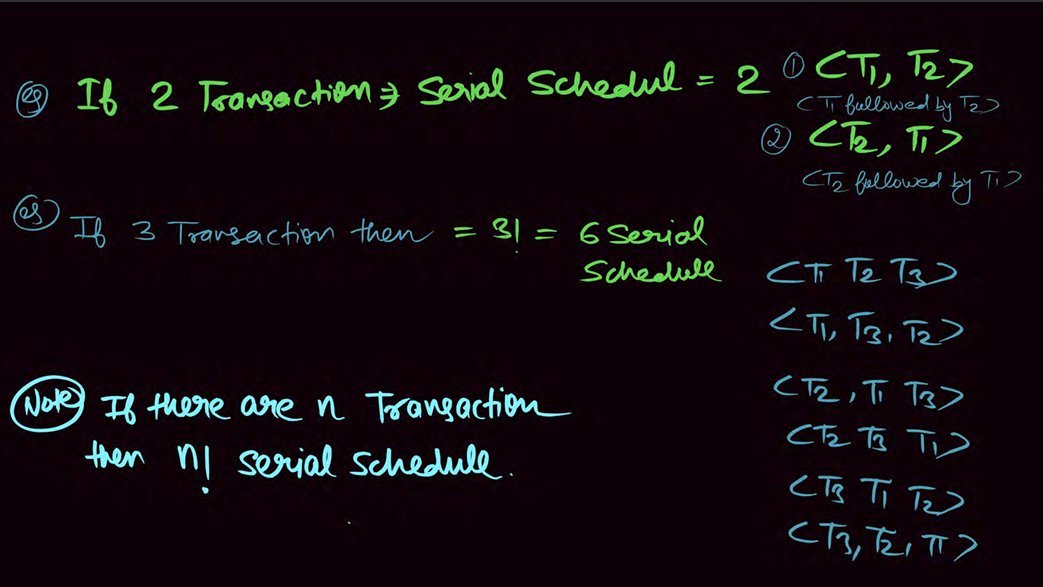 eg If 2 Transaction ⇒ Serial Schedul = 2
① <T1, T2>
<T1 followed by T2>
② <T2, T1>
<T2 followed by T1>
eg If 3 Transaction then = 3! = 6 Serial
Schedule
<T1 T2 T3>
<T1, T3, T2>
<T2, T1 T3>
<T2 T3 T1>
<T3 T1 T2>
<T3, T2, T1>
Note If there are n Transaction
then n! serial schedule.